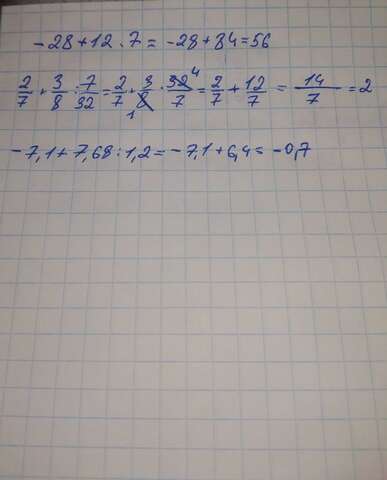 -28+12·7=-28+84=56
2/7+3/8:7/32=2/7+3/8·32/7=2/7+12/7=14/7=2
-7,1+7,68:1,2=-7,1+6,4=-0,7